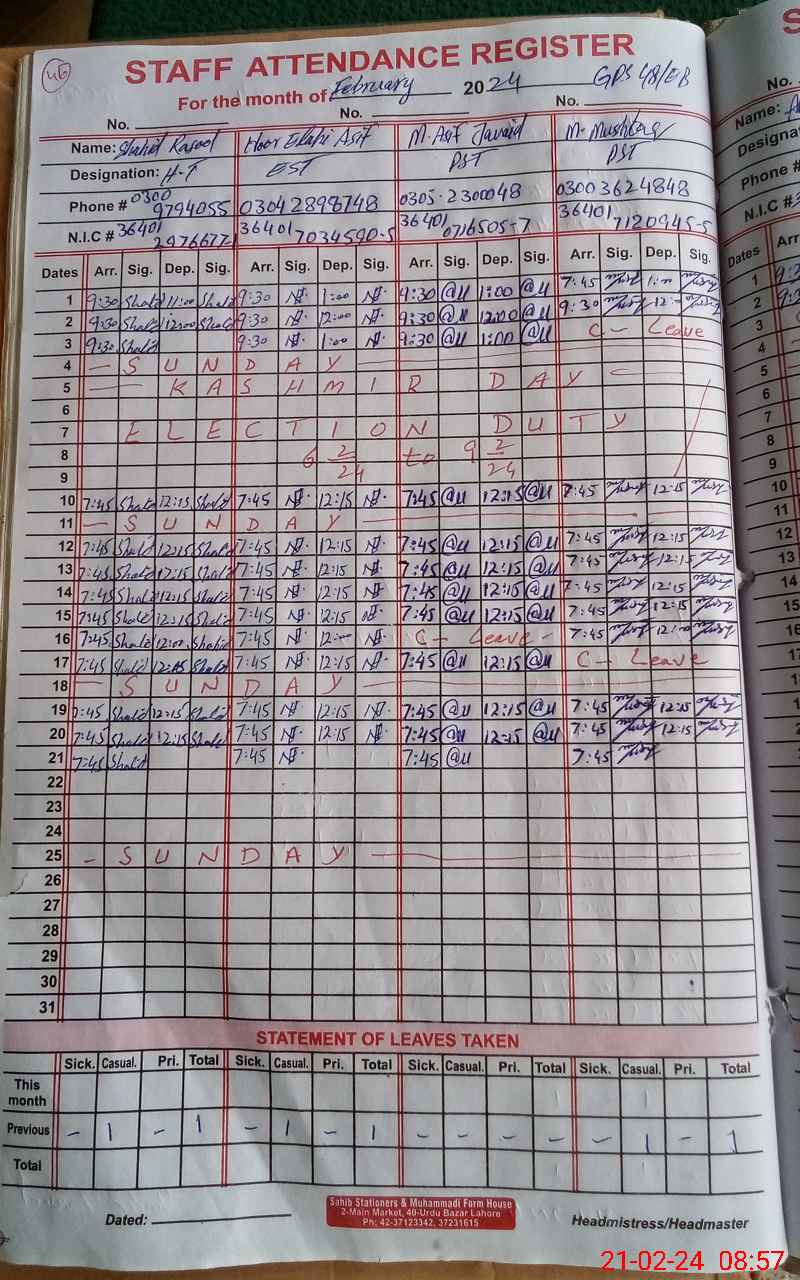 46
STAFF ATTENDANCE REGISTER
For the month of February 2024 GPS 48/EB
No. No. No.
Name: Shahid Rasool Noor Elahi Asif M. Asif Javaid M. Mushtaq
Designation: H-T EST PST PST
Phone # 0300 9794055 03042898748 0305-2300048 03003624848
N.I.C # 36401 29766771 36401 7034590-5 36401 0716505-7 36401 7120945-5
Dates Arr. Sig. Dep. Sig. Arr. Sig. Dep. Sig. Arr. Sig. Dep. Sig. Arr. Sig. Dep. Sig.
1 9:30 Shahid 11:00 Shahid 9:30 1:00 9:30 1:00 7:45 1:00
2 9:30 Shahid 12:00 Shahid 9:30 12:00 9:30 12:00 9:30 12:-
3 9:30 Shahid 9:30 1:00 9:30 1:00 C- Leave
4 - S U N D A Y
5 KASHMIR DAY
6
7 ELECTION DUTY
8 6 2/24 to 9 2/24
9
10 7:45 Shahid 12:15 Shahid 7:45 12:15 7:45 12:15 7:45 12:15
11 - S U N D A Y
12 7:45 Shahid 12:15 Shahid 7:45 12:15 7:45 12:15 7:45 12:15
13 7:45 Shahid 12:15 Shahid 7:45 12:15 7:45 12:15 7:45 12:15
14 7:45 Shahid 12:15 Shahid 7:45 12:15 7:45 12:15 7:45 12:15
15 7:45 Shahid 12:15 Shahid 7:45 12:15 7:45 12:15 7:45 12:15
16 7:45 Shahid 12:00 Shahid 7:45 12:00 C- Leave - 7:45 12:00
17 7:45 Shahid 12:15 Shahid 7:45 12:15 7:45 12:15 C- Leave
18 - S U N D A Y
19 7:45 Shahid 12:15 Shahid 7:45 12:15 7:45 12:15 7:45 12:15
20 7:45 Shahid 12:15 Shahid 7:45 12:15 7:45 12:15 7:45 12:15
21 7:45 Shahid 7:45 7:45 7:45
22
23
24
25 - S U N D A Y
26
27
28
29
30
31
STATEMENT OF LEAVES TAKEN
Sick. Casual. Pri. Total Sick. Casual. Pri. Total Sick. Casual. Pri. Total Sick. Casual. Pri. Total
This month
Previous - 1 - 1 - 1 - 1 - - - - - 1 - 1
Total
Dated: Headmistress/Headmaster
Sahib Stationers & Muhammadi Form House
2-Main Market, 40-Urdu Bazar Lahore
Ph: 42-37123342, 37231615
21-02-24 08:57